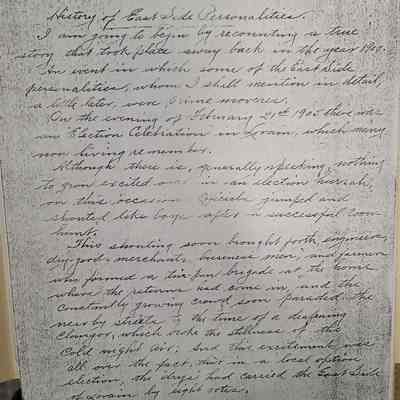 History of East Side Personalities.
I am going to begin by recounting a true
story that took place away back in the year 1905.
An event in which some of the East Side
personalities, whom I shall mention in detail,
a little later, were prime movers.
On the evening of February 21st 1905 there was
an Election Celebration in Lorain, which many
now living remember.
Although there is, generally speaking, nothing
to grow excited over in an election
on this occasion jumped and
shouted like boys after a successful coon
hunt.
This shouting soon brought forth, engineers,
dry-goods merchants, business men, and farmers
who formed a tin pan brigade at the home
where the returns had come in, and the
constantly growing crowd soon paraded the
nearby streets to the tune of a deafening
Clamgor, which woke the stillness of the
Cold night air; And this excitement was
all over the fact, that in a local option
election, the drys had carried the East Side
of Lorain by eight votes.